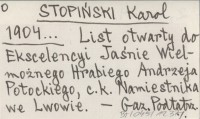 STOPIŃSKI Karol
1904... List otwarty do
Ekscelencyi Jaśnie Wiel-
możnego Hrabiego Andrzeja
Potockiego, c.k. Namiestnika
we Lwowie. — Gaz. Podtatrz.